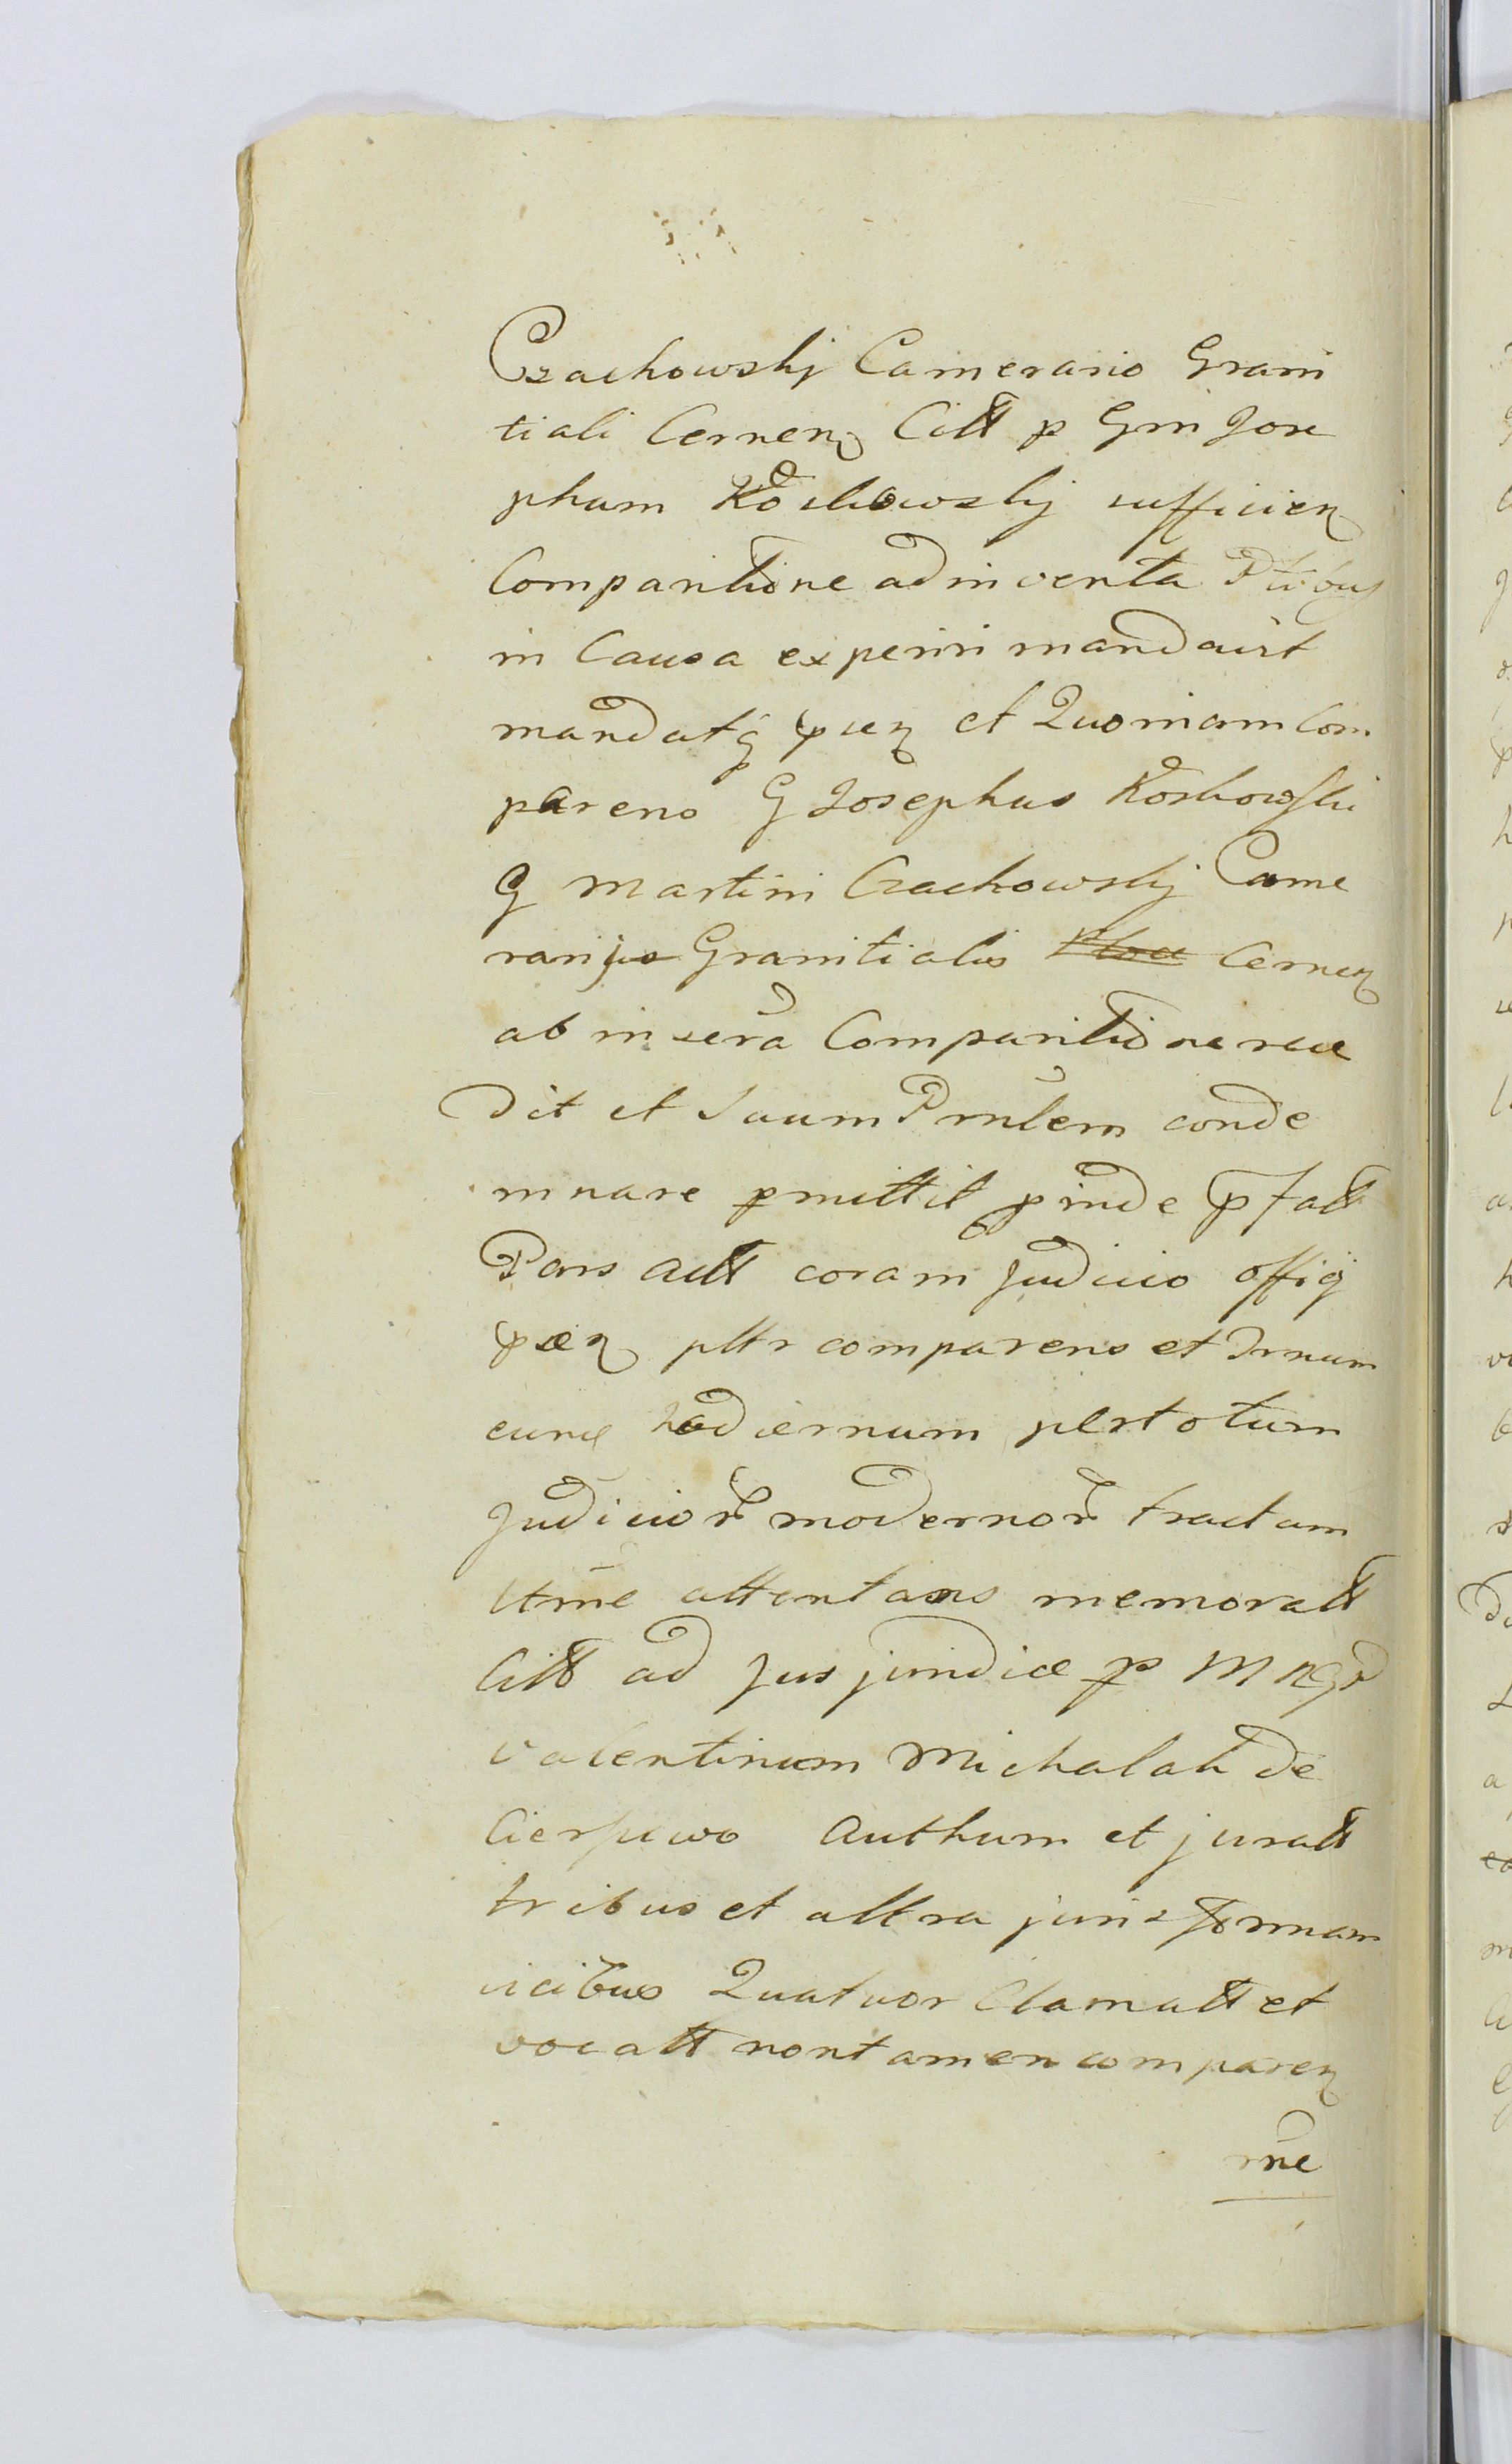 Czachowskj Camerario Grani
tiali Cernen Citt p Gm Jose
phum Koskowskj sufficien
Comparitione adinventa Ptibus
in Causa experiri mandavit
mandatq pñz et Quoniam Com
parens G Josephus Koskowski
G Martini Czachowskj Came
rarijs Granitialis Cernen
ab in sera Comparitione rece
dit et suum Prñlem conde
mnare pmittit pinde pfatt
Pars Actt coram Judicio Offiq
pñz pltr comparens et Trnum
eunq hodiernum per totum
Judicior modernor tractum
ltme attentans memoratt
Citt ad Jus juridice p M
Valentinum Michalak de
Cierpiewo Authum et juratt
tribus et ultra juris formam
vicibus Quatuor Clamatt et
vocatt non tamen comparen
me